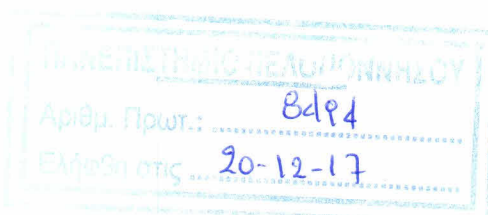 ΠΑΝΕΠΙΣΤΗΜΙΟ ΠΕΛΟΠΟΝΝΗΣΟΥ
Αριθμ. Πρωτ.:
Ελήφθη στις 20-12-17